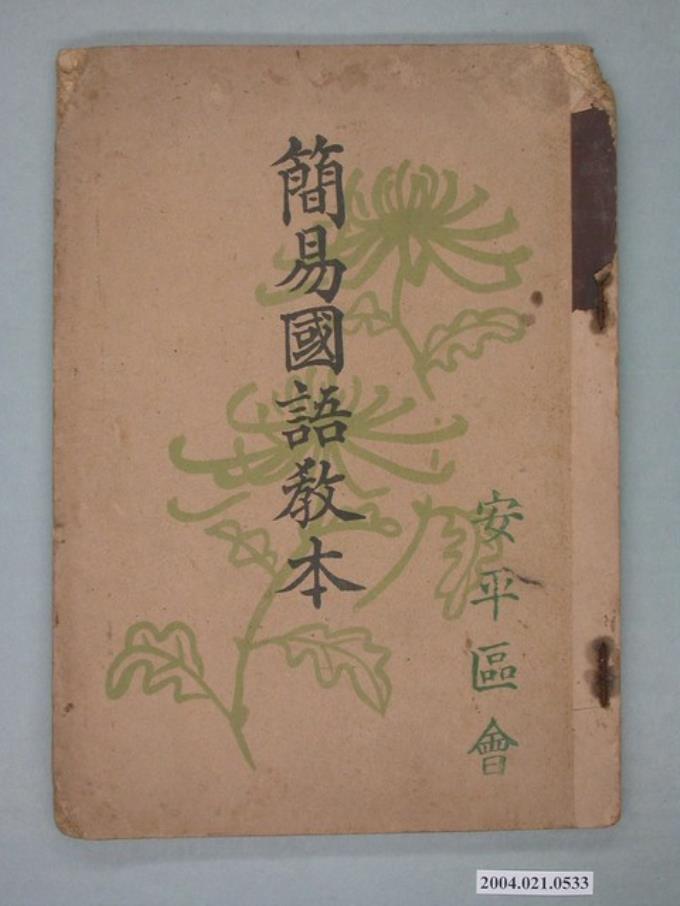 簡易國語教本
安平區會
2004.021.0533